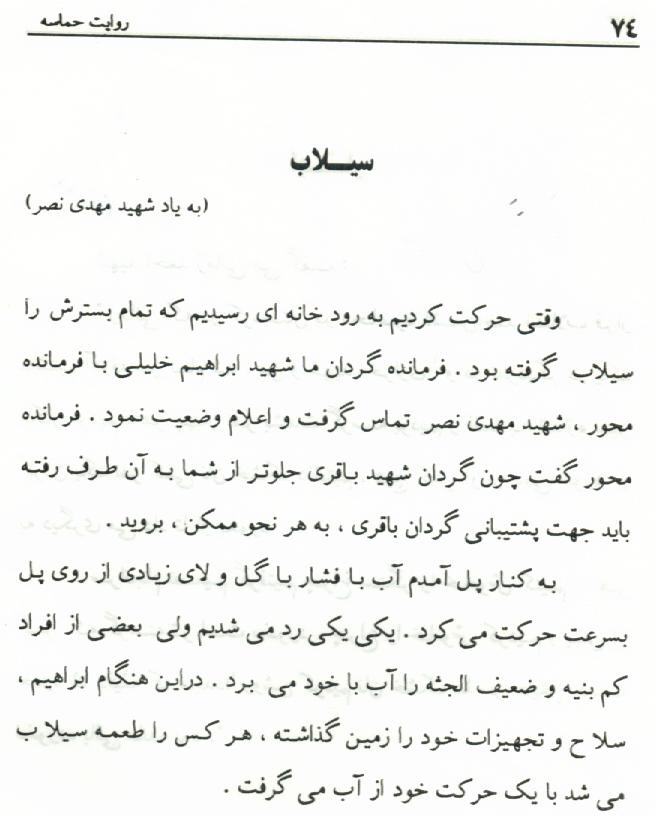 ۷٤
روایت حماسه
سیـلاب
(به یاد شهید مهدی نصر)
وقتی حرکت کردیم به رود خانه ای رسیدیم که تمام بسترش را
سیلاب گرفته بود . فرمانده گردان ما شهید ابراهیم خلیلی با فرمانده
محور ، شهید مهدی نصر تماس گرفت و اعلام وضعیت نمود . فرمانده
محور گفت چون گردان شهید باقری جلوتر از شما به آن طرف رفته
باید جهت پشتیبانی گردان باقری ، به هر نحو ممکن ، بروید .
به کنار پل آمدم آب با فشار با گل و لای زیادی از روی پل
بسرعت حرکت می کرد . یکی یکی رد می شدیم ولی بعضی از افراد
کم بنیه و ضعیف الجثه را آب با خود می برد . دراین هنگام ابراهیم ،
سلا ح و تجهیزات خود را زمین گذاشته ، هر کس را طعمه سیلا ب
می شد با یک حرکت خود از آب می گرفت .